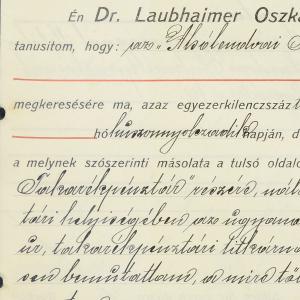 Én Dr. Laubhaimer Oszká
tanusítom, hogy: az „Alsólendvai
megkeresésére ma, azaz egyezerkilenczszáz
hó huszonnyolczadik napján, d
a melynek szószerinti másolata a tulsó oldalo
Takarékpénztár" részére,
tári helyiségében az ugyana
úr, takarékpénztári titkárna
sen bemutattam, a mire